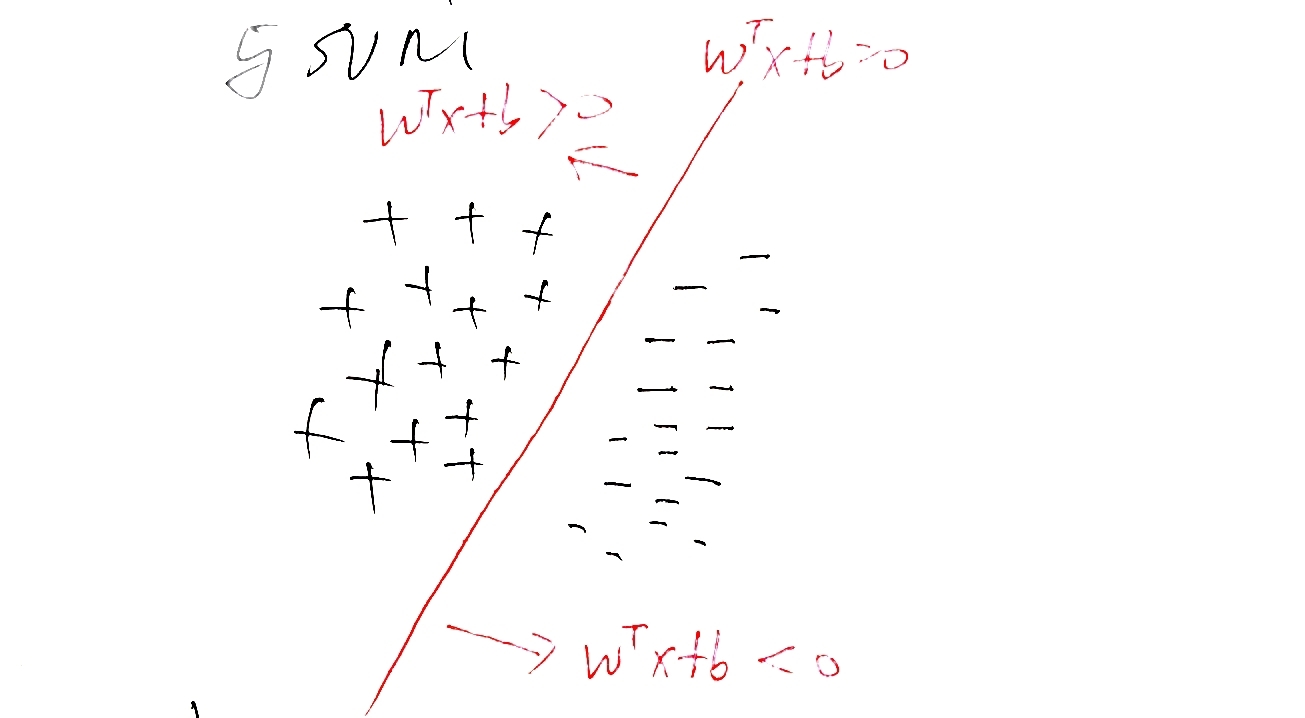 5 SVM
wᵀx+b=0
wᵀx+b>0
+ + +
+ + + +
+ + +
+ + +
+ +
wᵀx+b<0